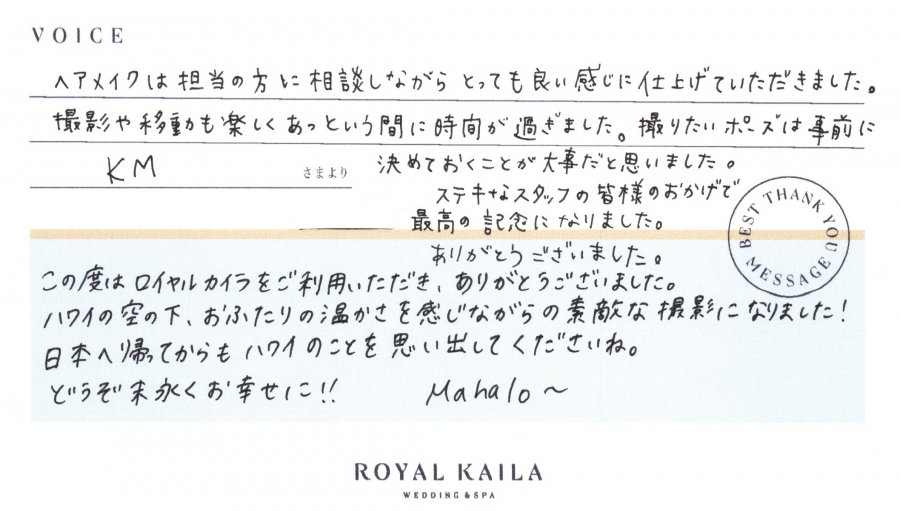 VOICE
ヘアメイクは担当の方に相談しながら とっても良い感じに仕上げていただきました。
撮影や移動も楽しくあっという間に時間が過ぎました。撮りたいポーズは事前に
決めておくことが大事だと思いました。
KM さまより
ステキなスタッフの皆様のおかげで
最高の記念になりました。
ありがとうございました。
BEST THANK YOU MESSAGE
この度はロイヤルカイラをご利用いただき、ありがとうございました。
ハワイの空の下、おふたりの温かさを感じながらの素敵な撮影になりました!
日本へ帰ってからもハワイのことを思い出してくださいね。
どうぞ末永くお幸せに!! Mahalo~
ROYAL KAILA
WEDDING & SPA